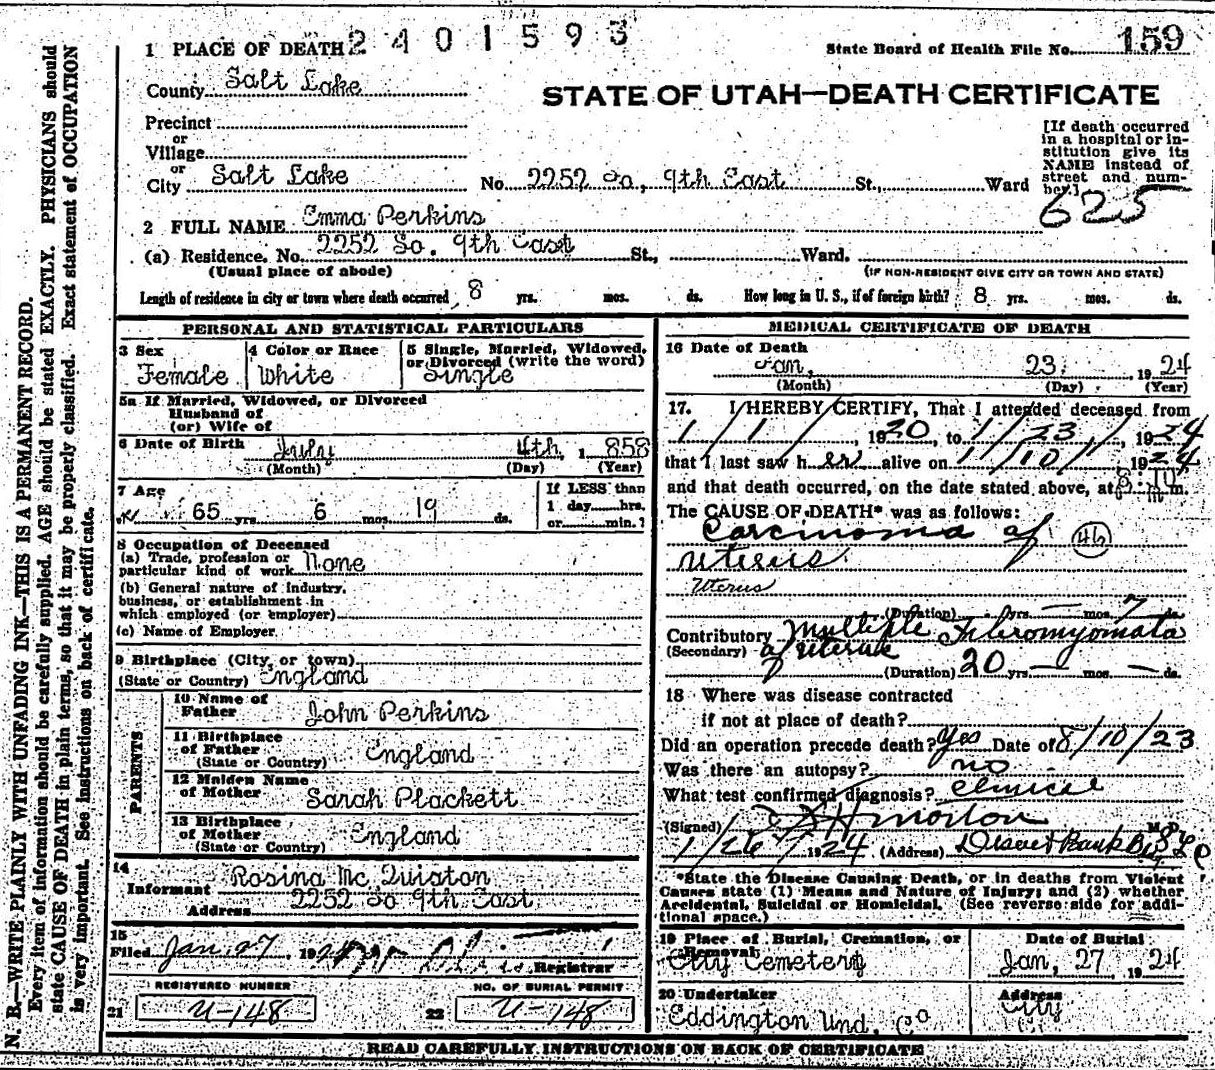 2401593
State Board of Health File No. 159
1 PLACE OF DEATH
County Salt Lake
STATE OF UTAH—DEATH CERTIFICATE
Precinct
or
Village
or
City Salt Lake No. 2252 So. 9th East St., Ward
[If death occurred
in a hospital or in-
stitution give its
NAME instead of
street and num-
ber.]
625
2 FULL NAME Emma Perkins
(a) Residence. No. 2252 So. 9th East St., Ward.
(Usual place of abode)
(IF NON-RESIDENT GIVE CITY OR TOWN AND STATE)
Length of residence in city or town where death occurred 8 yrs. mos. ds. How long in U. S., if of foreign birth? 8 yrs. mos. ds.
PERSONAL AND STATISTICAL PARTICULARS
3 Sex
Female
4 Color or Race
White
5 Single, Married, Widowed,
or Divorced (write the word)
Single
5a If Married, Widowed, or Divorced
Husband of
(or) Wife of
6 Date of Birth July 4th, 1858
(Month) (Day) (Year)
7 Age
65 yrs. 6 mos. 19 ds.
If LESS than
1 day hrs.
or min.?
8 Occupation of Deceased
(a) Trade, profession or
particular kind of work None
(b) General nature of industry,
business, or establishment in
which employed (or employer)
(c) Name of Employer
9 Birthplace (City, or town)
(State or Country) England
PARENTS
10 Name of
Father John Perkins
11 Birthplace
of Father England
(State or Country)
12 Maiden Name
of Mother Sarah Plackett
13 Birthplace
of Mother England
(State or Country)
14
Informant Rosina Mc Quiston
Address 2252 So 9th East
15
Filed Jan. 27, 192
Registrar
REGISTERED NUMBER
21 U-148
NO. OF BURIAL PERMIT
22 U-148
MEDICAL CERTIFICATE OF DEATH
16 Date of Death
Jan, 23 1924
(Month) (Day) (Year)
17. I HEREBY CERTIFY, That I attended deceased from
1/1/, 1920, to 1/23/, 1924
that I last saw her alive on 1/10/ 1924
and that death occurred, on the date stated above, at m.
The CAUSE OF DEATH* was as follows:
Carcinoma of (46)
uterus
Uterus
(Duration) yrs. — mos. 7 ds.
Contributory Multiple Fibromyomata
(Secondary) of uterus
(Duration) 20 yrs. — mos. — ds.
18 Where was disease contracted
if not at place of death?
Did an operation precede death? Yes Date of 8/10/23
Was there an autopsy? no
What test confirmed diagnosis? Clinical
(Signed) Morton M.D.
1/26/ 1924 (Address) Deseret Bank Bldg
*State the Disease Causing Death, or in deaths from Violent
Causes state (1) Means and Nature of Injury; and (2) whether
Accidental, Suicidal or Homicidal. (See reverse side for addi-
tional space.)
19 Place of Burial, Cremation, or
Removal
City Cemetery
Date of Burial
Jan, 27, 1924
20 Undertaker
Eddington Und. Co
Address
City
READ CAREFULLY INSTRUCTIONS ON BACK OF CERTIFICATE
N. B.—WRITE PLAINLY WITH UNFADING INK—THIS IS A PERMANENT RECORD.
Every item of information should be carefully supplied. AGE should be stated EXACTLY. PHYSICIANS should
state CAUSE OF DEATH in plain terms, so that it may be properly classified. Exact statement of OCCUPATION
is very important. See instructions on back of certificate.